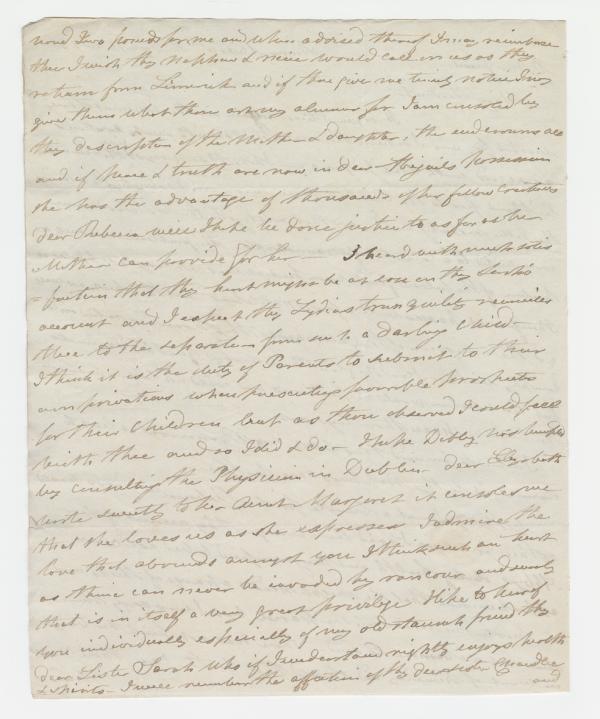 two pounds for me and when advised thereof I may reimburse
thee I wish thy nephew & niece would call on us as they
return from Limerick and if thou give me timely notice I may
give them what thou art my almoner for I am consoled by
thy description of the Mother & daughter, the end crowns all
and if peace & truth are now in dear Abigails possession
she has the advantage of thousands of her fellow creatures
dear Rebecca will I hope be done justice to as far as her
Mother can provide for her — I heard with much satis
=faction that thy heart might be at ease on thy
account and I expect thy Lydias tranquility reconciles
thee to the separation from such a darling Child —
I think it is the duty of Parents to submit to their
own privations when prospects
for their Children but as thou observed I could feel
with thee and so I did & do — I hope Debby was benefited
by consulting the Physician in Dublin — dear Elizabeth
wrote sweetly to her Aunt Margaret it consoles me
that she loves us as she expresses I admire the
love that abounds amongst you I think such an heart
as thine can never be invaded by rancour and surely
that is in itself a very great privilege I like to hear of
you individually especially of my old staunch friend thy
dear Sister Sarah who if I understand rightly enjoys health
& spirits — I well remember the affection of thy dear sister
and